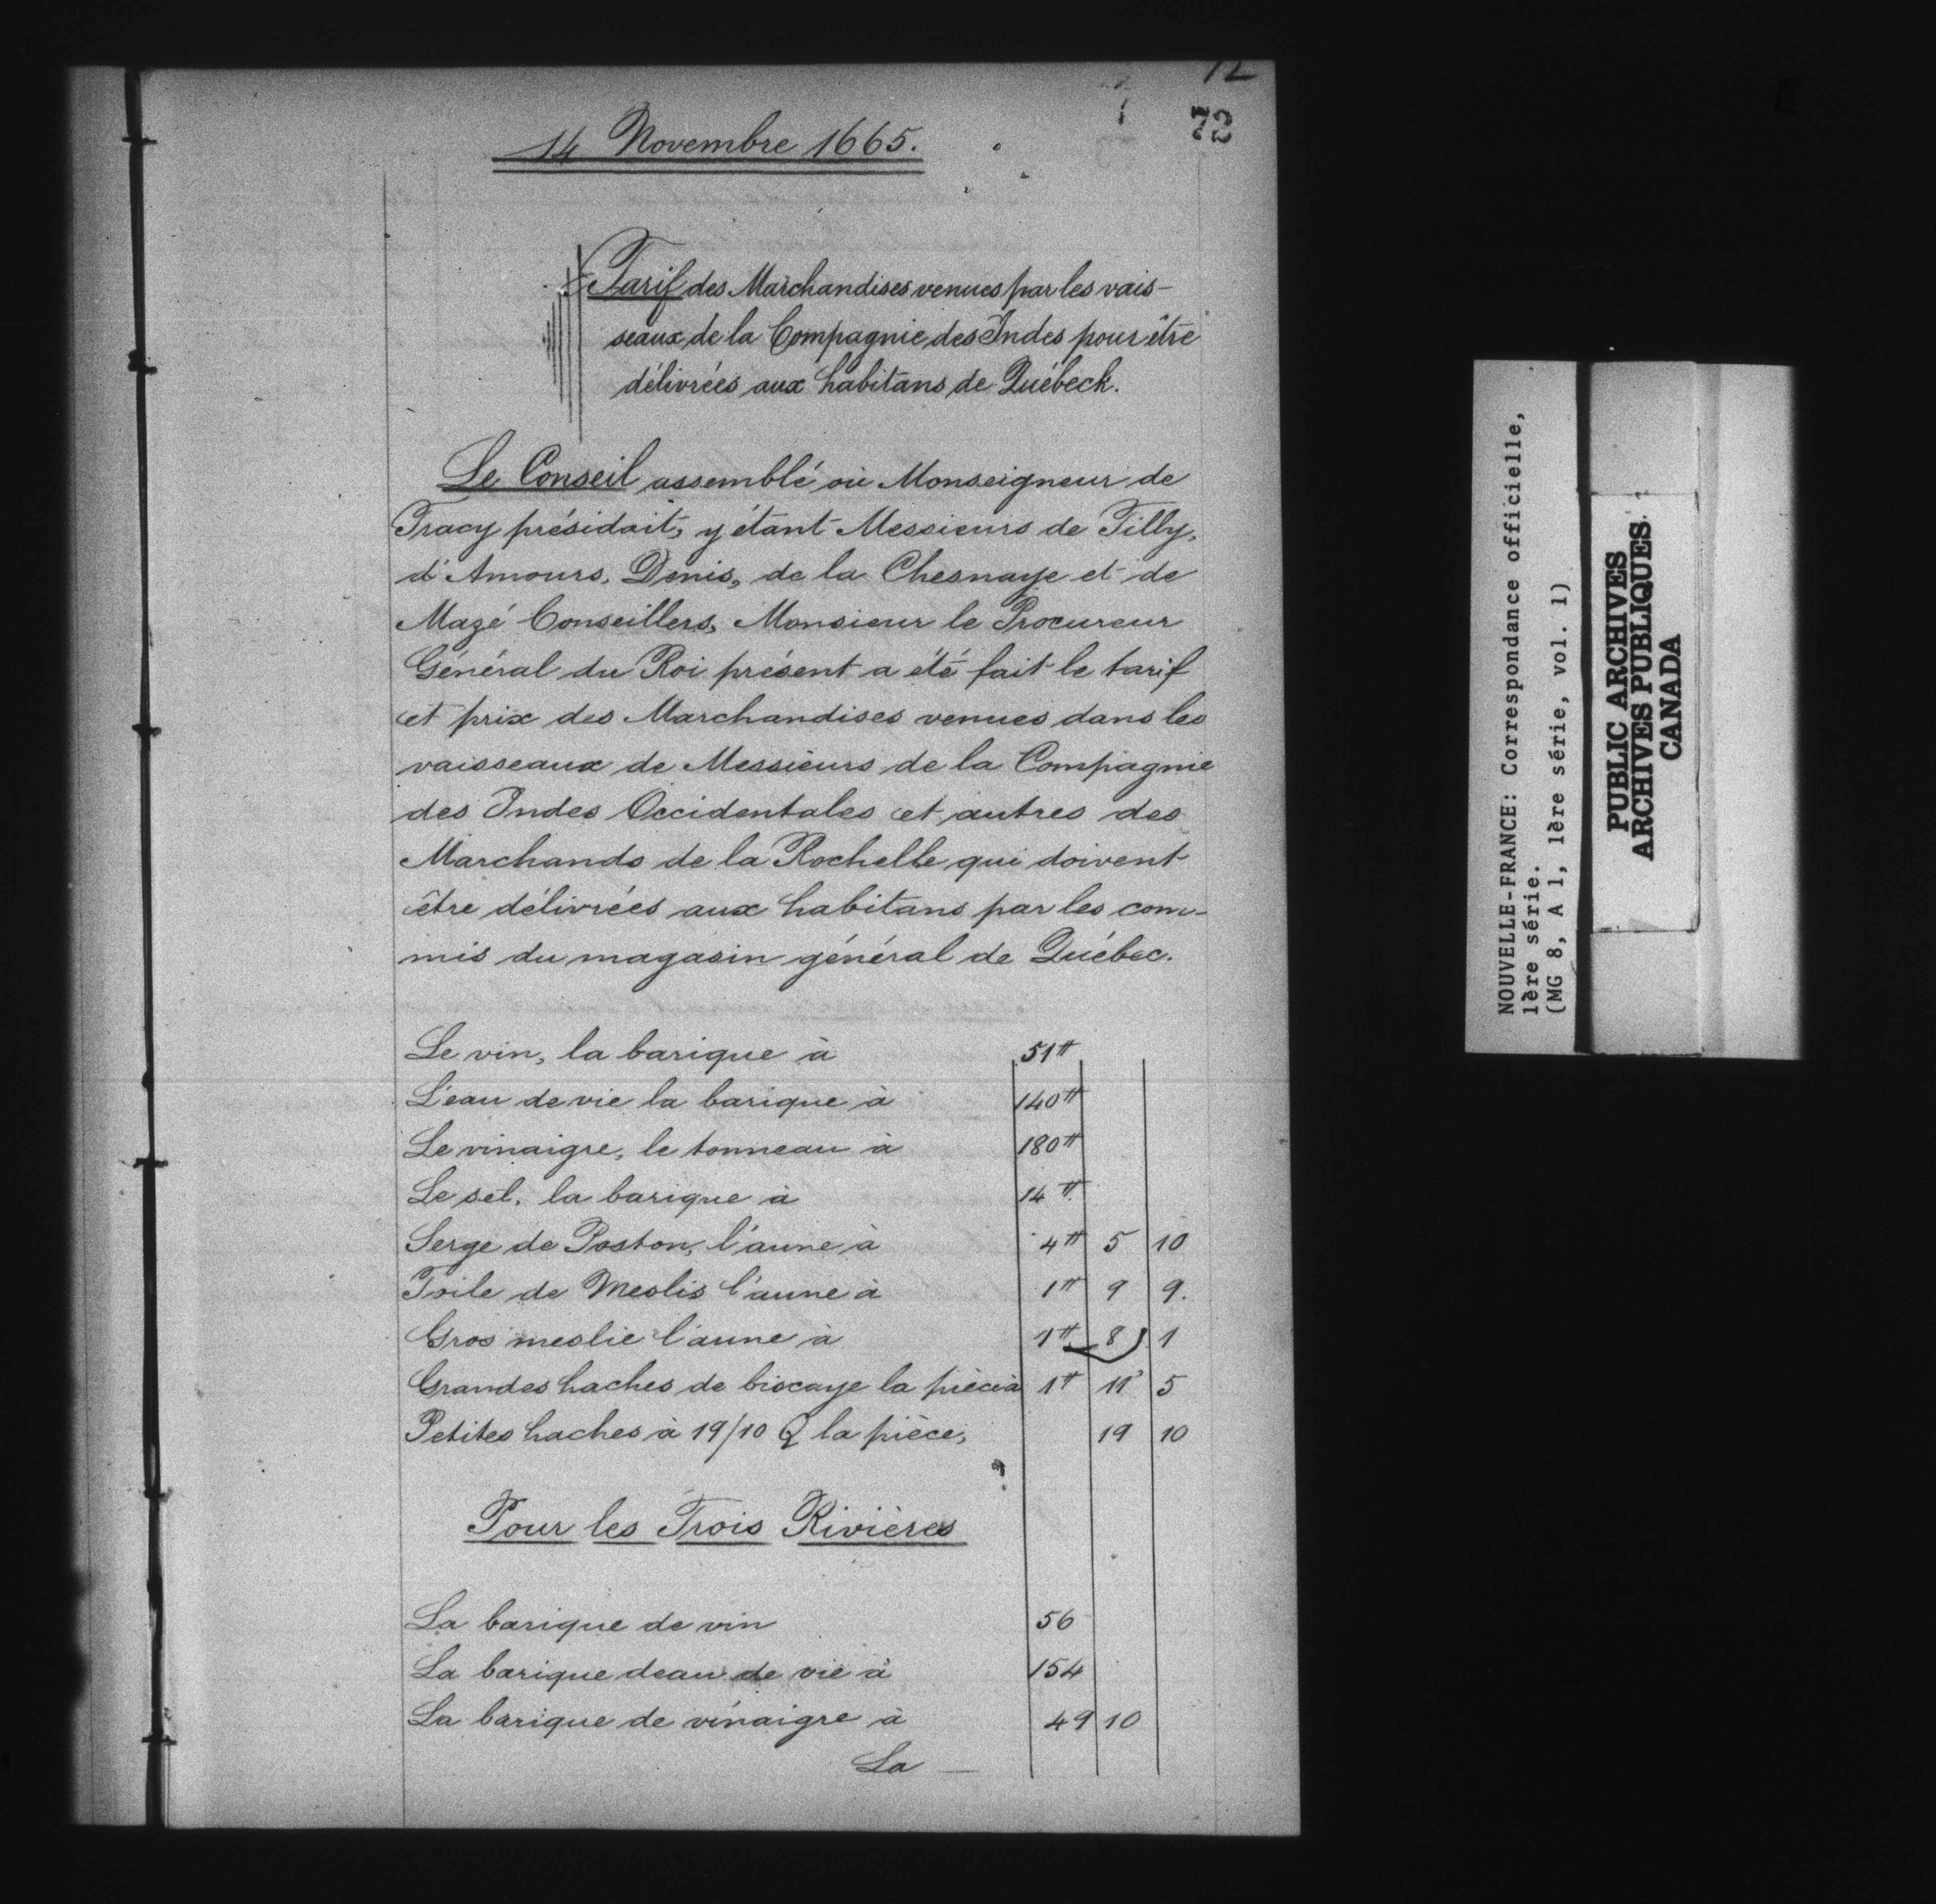 72
72
14 Novembre 1665.
Tarif des Marchandises venues par les vais-
seaux de la Compagnie des Indes pour être
délivrées aux habitans de Québeck.
Le Conseil assemblé où Monseigneur de
Tracy présidait, y étant Messieurs de Tilly,
d'Amours, Denis, de la Chesnaye et de
Mazé Conseillers, Monsieur le Procureur
Général du Roi présent a été fait le tarif
et prix des Marchandises venues dans les
vaisseaux de Messieurs de la Compagnie
des Indes Occidentales et autres des
Marchands de la Rochelle qui doivent
être délivrées aux habitans par les com-
mis du magasin général de Québec.
Le vin, la barique à 51#
L'eau de vie la barique à 140#
Le vinaigre, le tonneau à 180#
Le sel, la barique à 14#
Serge de Poston, l'aune à 4# 5 10
Toile de Meslis l'aune à 1# 9 9.
Gros meslie l'aune à 1# 8 1
Grandes haches de biscaye la pièce à 1# 11 5
Petites haches à 19/10 la pièce, 19 10
Pour les Trois Rivières
La barique de vin 56
La barique deau de vie à 154
La barique de vinaigre à 49 10
La —
NOUVELLE-FRANCE: Correspondance officielle,
1ère série.
(MG 8, A 1, 1ère série, vol. 1)
PUBLIC ARCHIVES
ARCHIVES PUBLIQUES
CANADA